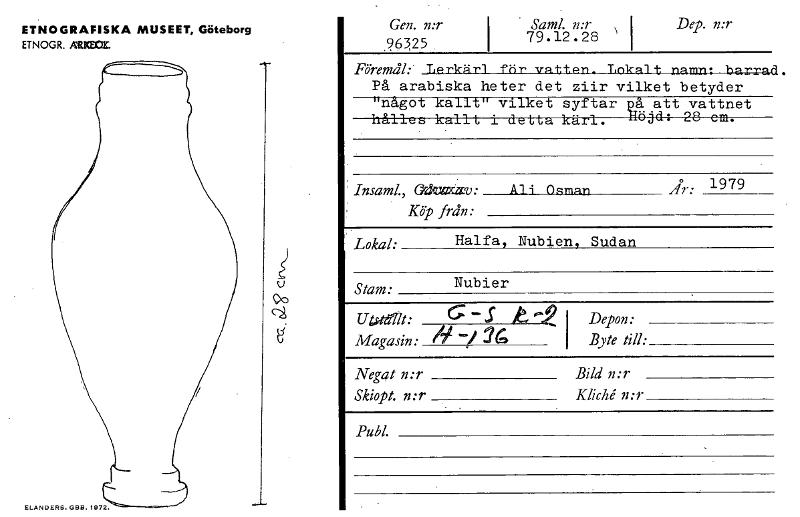 ETNOGRAFISKA MUSEET, Göteborg
ETNOGR. ARKEOL.
ca. 28 cm
ELANDERS. GBG. 1972.
Gen. n:r Saml. n:r Dep. n:r
96325 79.12.28
Föremål: Lerkärl för vatten. Lokalt namn: barrad.
På arabiska heter det ziir vilket betyder
"något kallt" vilket syftar på att vattnet
hålles kallt i detta kärl. Höjd: 28 cm.
Insaml., Gåva av: Ali Osman År: 1979
Köp från:
Lokal: Halfa, Nubien, Sudan
Stam: Nubier
Utställt: G-S R-2 Depon:
Magasin: H-136 Byte till:
Negat n:r Bild n:r
Skiopt. n:r Kliché n:r
Publ.